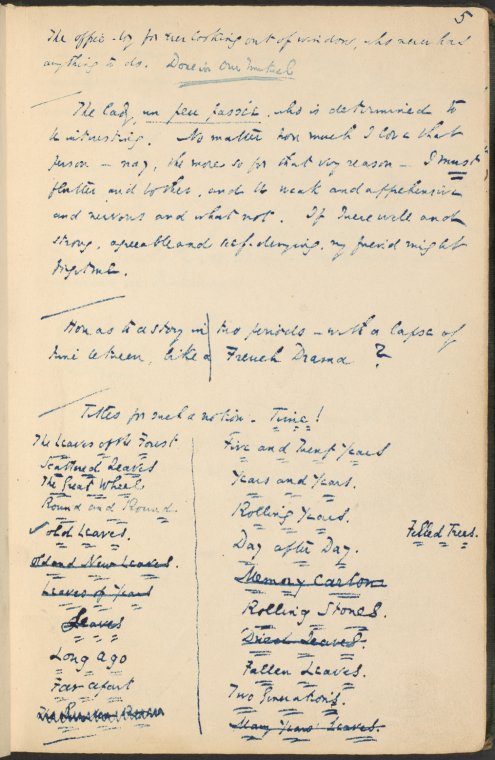 5
The office-boy for ever looking out of window, who never has
anything to do. Done in Our Mutual
The lady, un peu passée, who is determined to
be interesting. No matter how much I love that
person — nay, the more so for that very reason — I must
flatter and bother, and be weak and apprehensive
and nervous and what not. If I were well and
strong, agreeable and self-denying, my friend might
forget me.
How as to a story in two periods — with a lapse of
time between, like a French Drama?
Titles for such a notion. Time!
The Leaves of the Forest
Scattered Leaves
The Great Wheel.
Round and Round.
Old Leaves.
Old and New Leaves.
Leaves of Years
Leaves
Long Ago
Far apart
Five and Twenty Years
Years and Years.
Rolling Years.
Day after Day.
Memory Carton
Rolling Stones.
Dried Leaves.
Fallen Leaves.
Two Generations.
Many Years' Leaves.
Felled Trees.